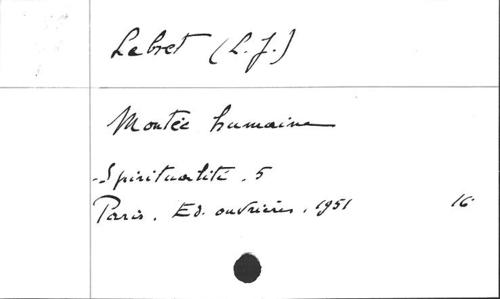 Lebret (L.J.)
Montée humaine
Spiritualité. 5
Paris. Ed. ouvrières. 1951 16